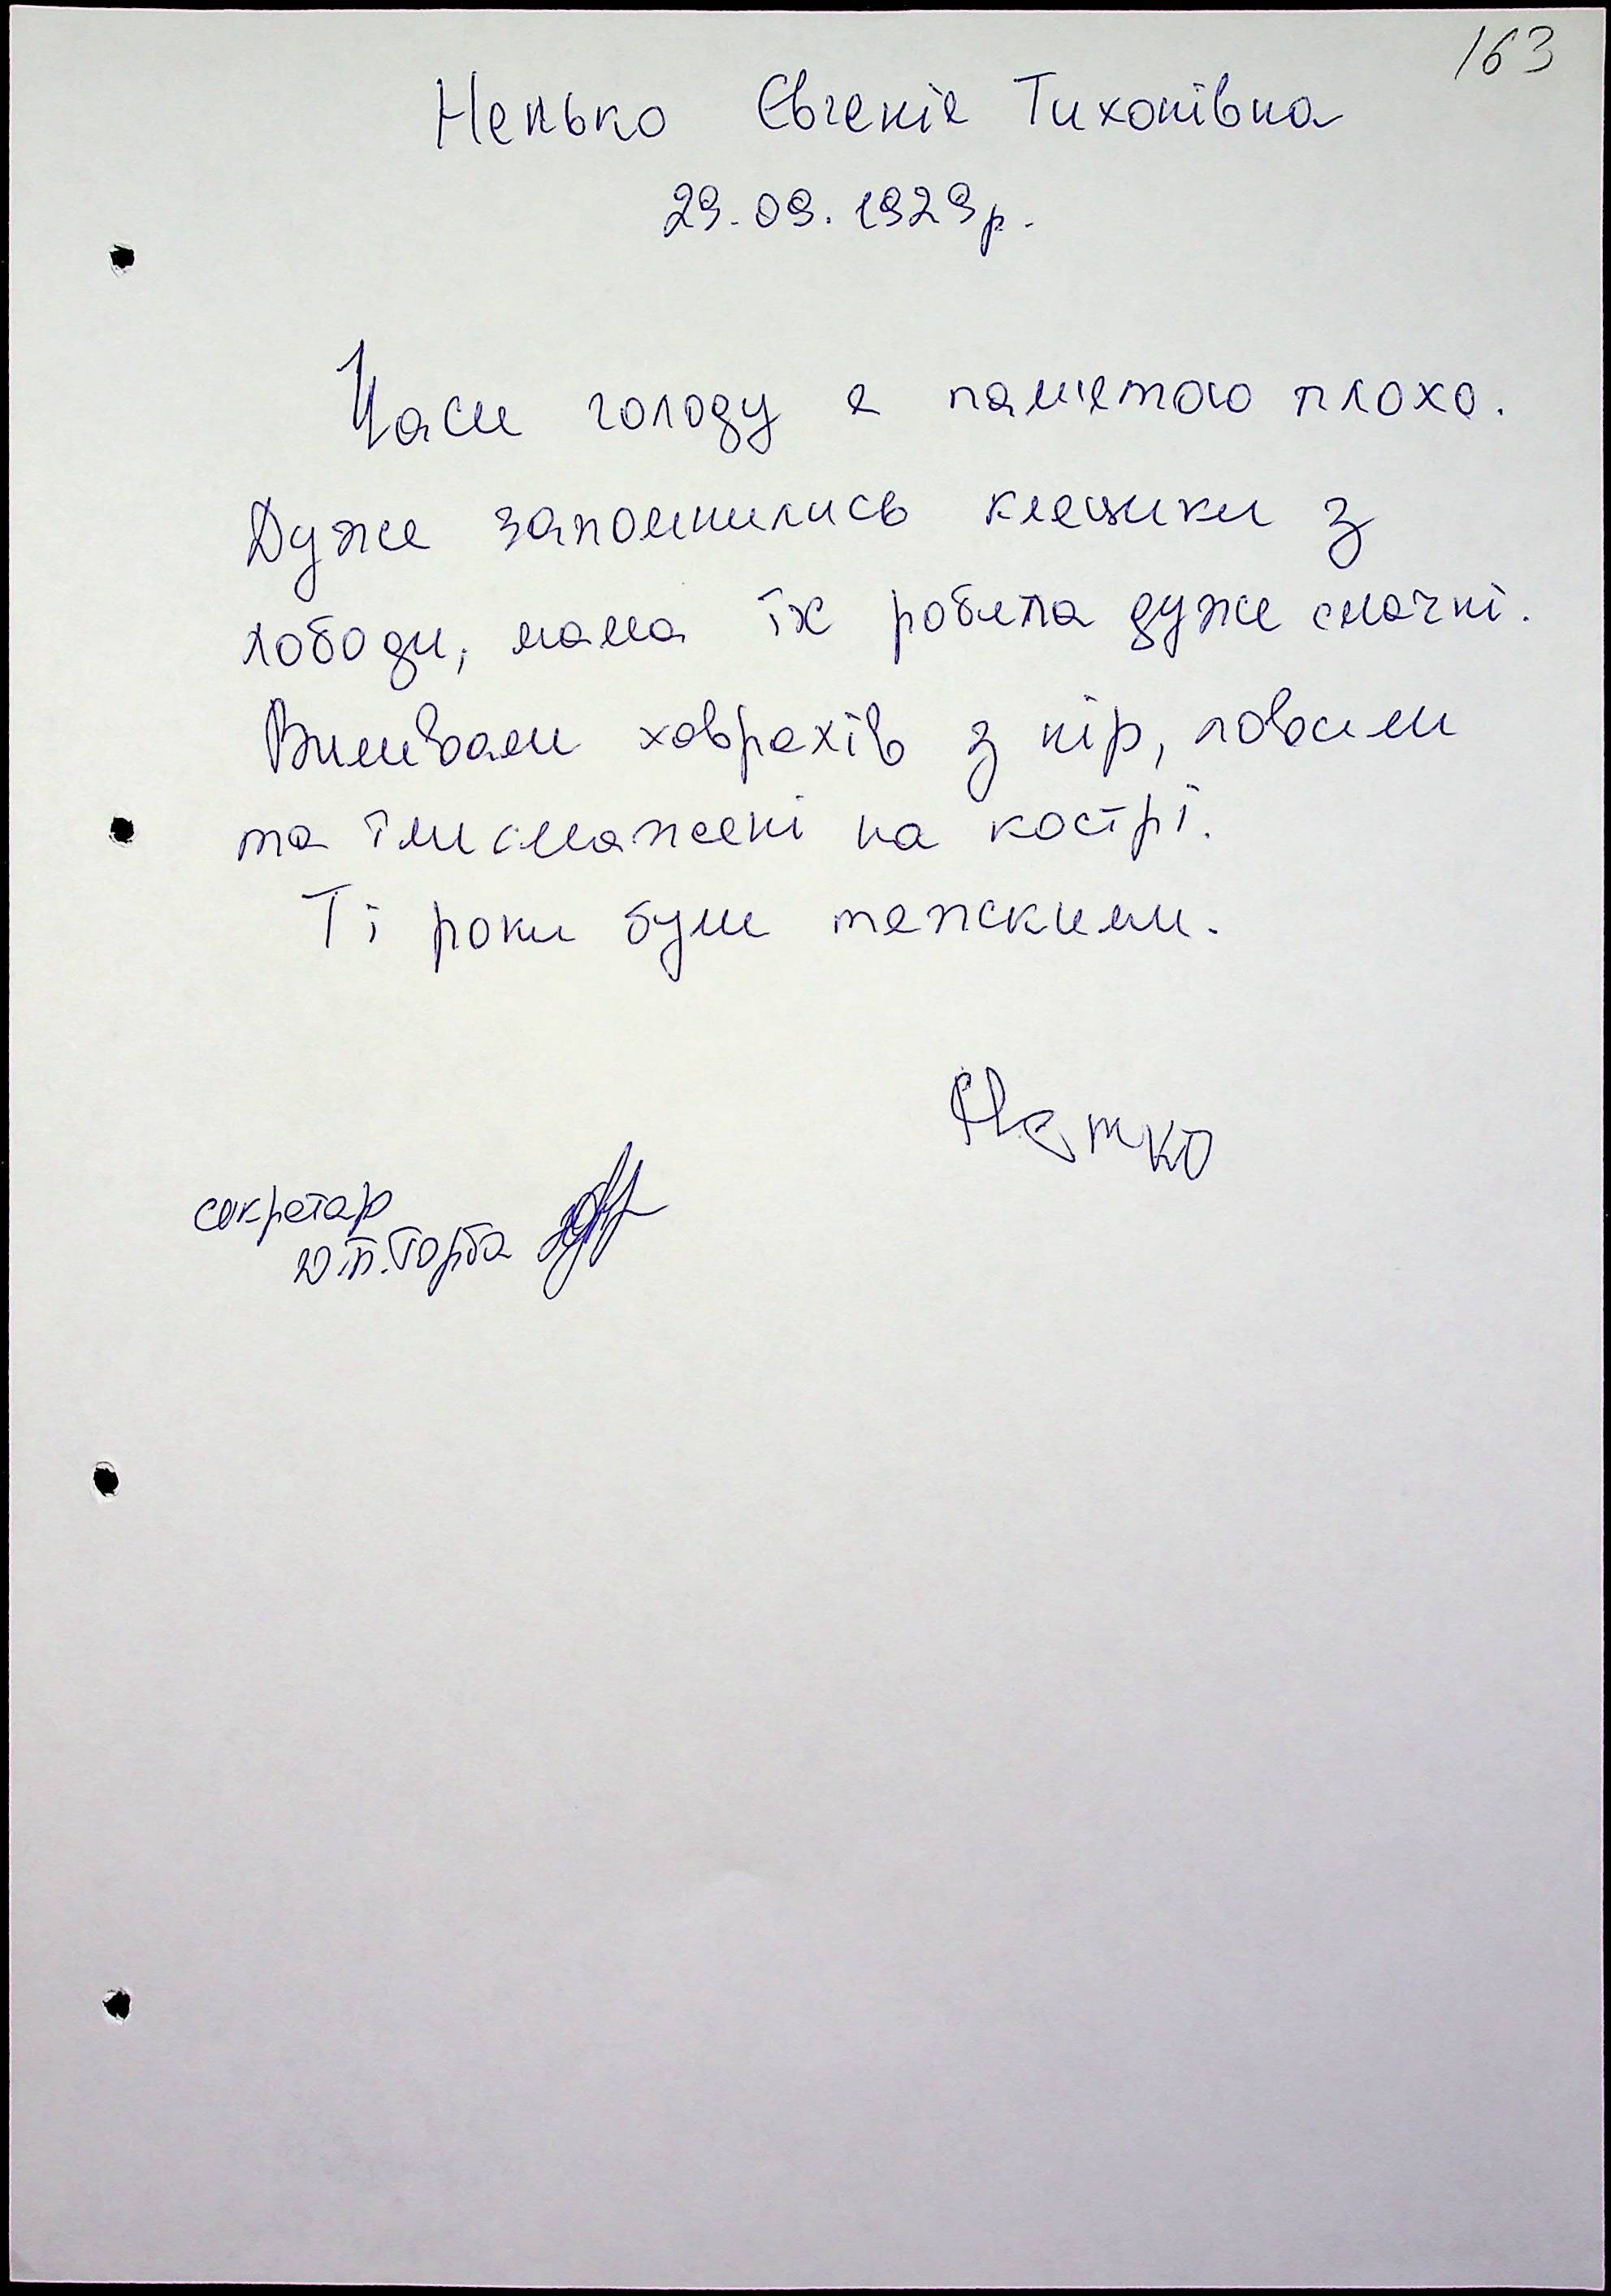 163
Ненько Євгенія Тихонівна
29.09.1929р.
Часи голоду я пам'ятаю плохо.
Дуже запомнились клецики з
лободи, мама їх робила дуже смачні.
Виливали ховрахів з нір, ловили
та їли смажені на кострі.
Ті роки були тяжскими.
секретар
Ю.П. Горба